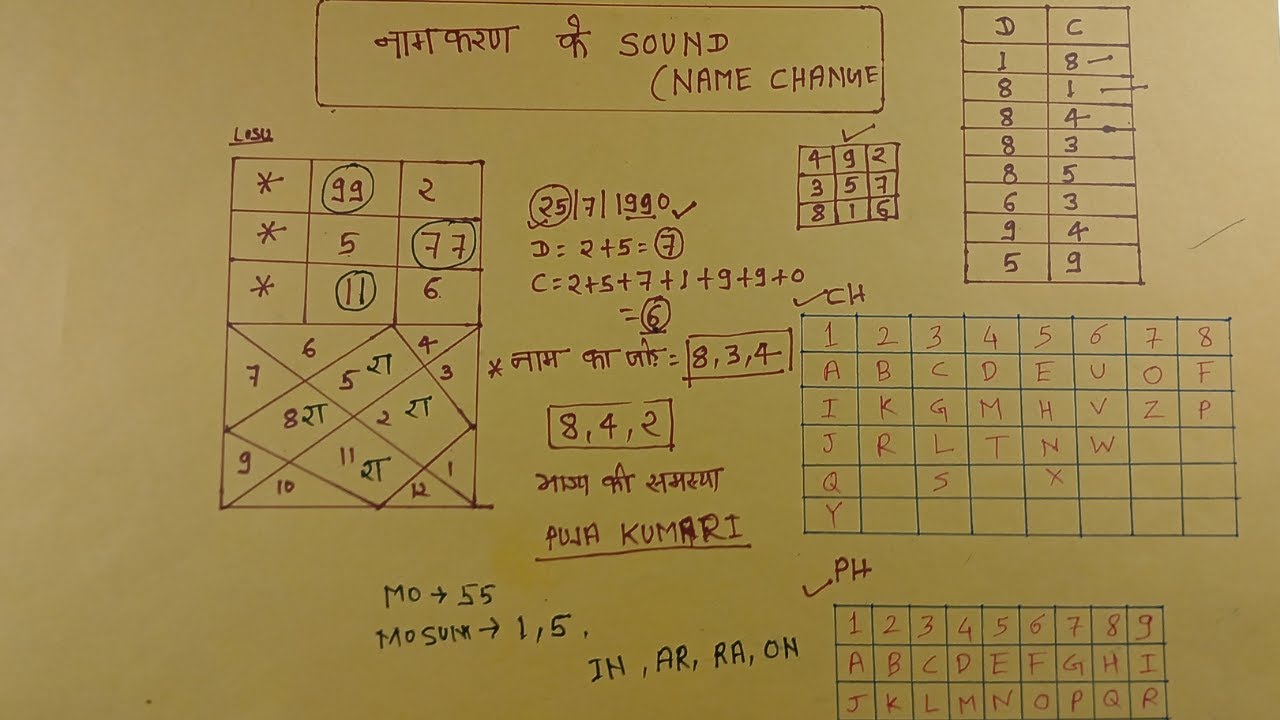 नामकरण के SOUND
(NAME CHANGE
D C
1 8
8 1
8 4
8 3
8 5
6 3
9 4
5 9
LOSU
* 99 2
* 5 77
* 11 6
4 9 2
3 5 7
8 1 6
25/7/1990
D = 2+5 = 7
C = 2+5+7+1+9+9+0
= 6
* नाम का जोड़ = 8,3,4
8,4,2
भाग्य की समस्या
PUJA KUMARI
6 4
7 5 रा 3
8 रा 2 रा
9 11 रा 1
10 12
CH
1 2 3 4 5 6 7 8
A B C D E U O F
I K G M H V Z P
J R L T N W
Q S X
Y
MO → 55
MOSUM → 1,5.
IN, AR, RA, ON
PH
1 2 3 4 5 6 7 8 9
A B C D E F G H I
J K L M N O P Q R